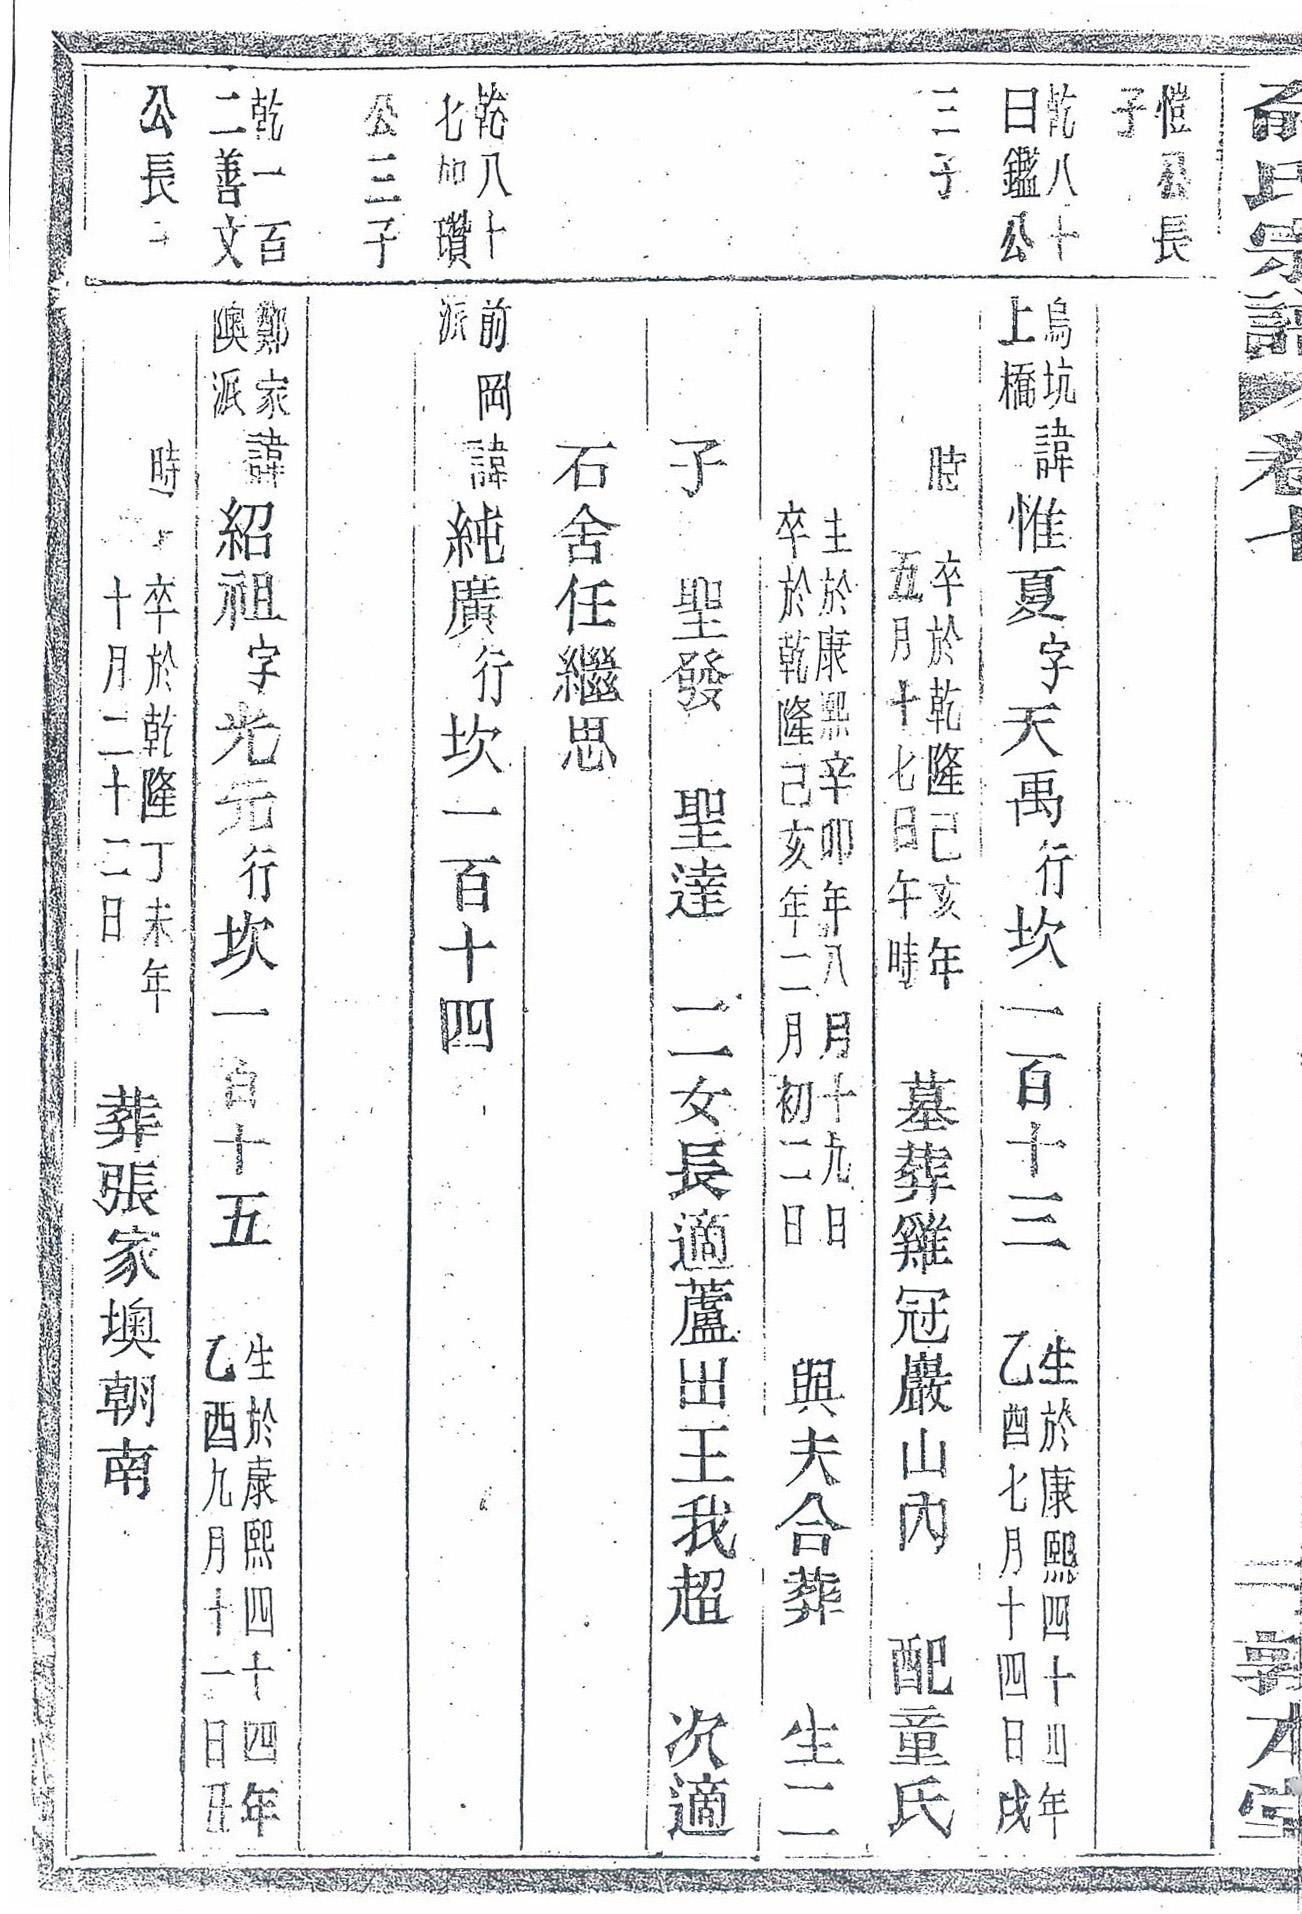 俞氏宗譜 卷七
二 敦本堂
愷公長
子
乾八十
曰鑑公
三子
乾八十
七如瓚
公三子
乾一百
二善文
公長
烏坑
上橋
諱惟夏字天禹行坎一百十三 生於康熙四十四年
乙酉七月十四日戌
時 卒於乾隆己亥年
五月十七日午時 墓葬雞冠巖山內 配童氏
生於康熙辛卯年八月十九日
卒於乾隆己亥年二月初二日 與夫合葬 生二
子 聖發 聖達 二女長適蘆田王我超 次適
石舍任繼思
前岡
派
諱純廣行坎一百十四
鄭家
隩派
諱紹祖字光元行坎一百十五 生於康熙四十四年
乙酉九月十一日丑
時 卒於乾隆丁未年
十月二十二日 葬張家墺朝南